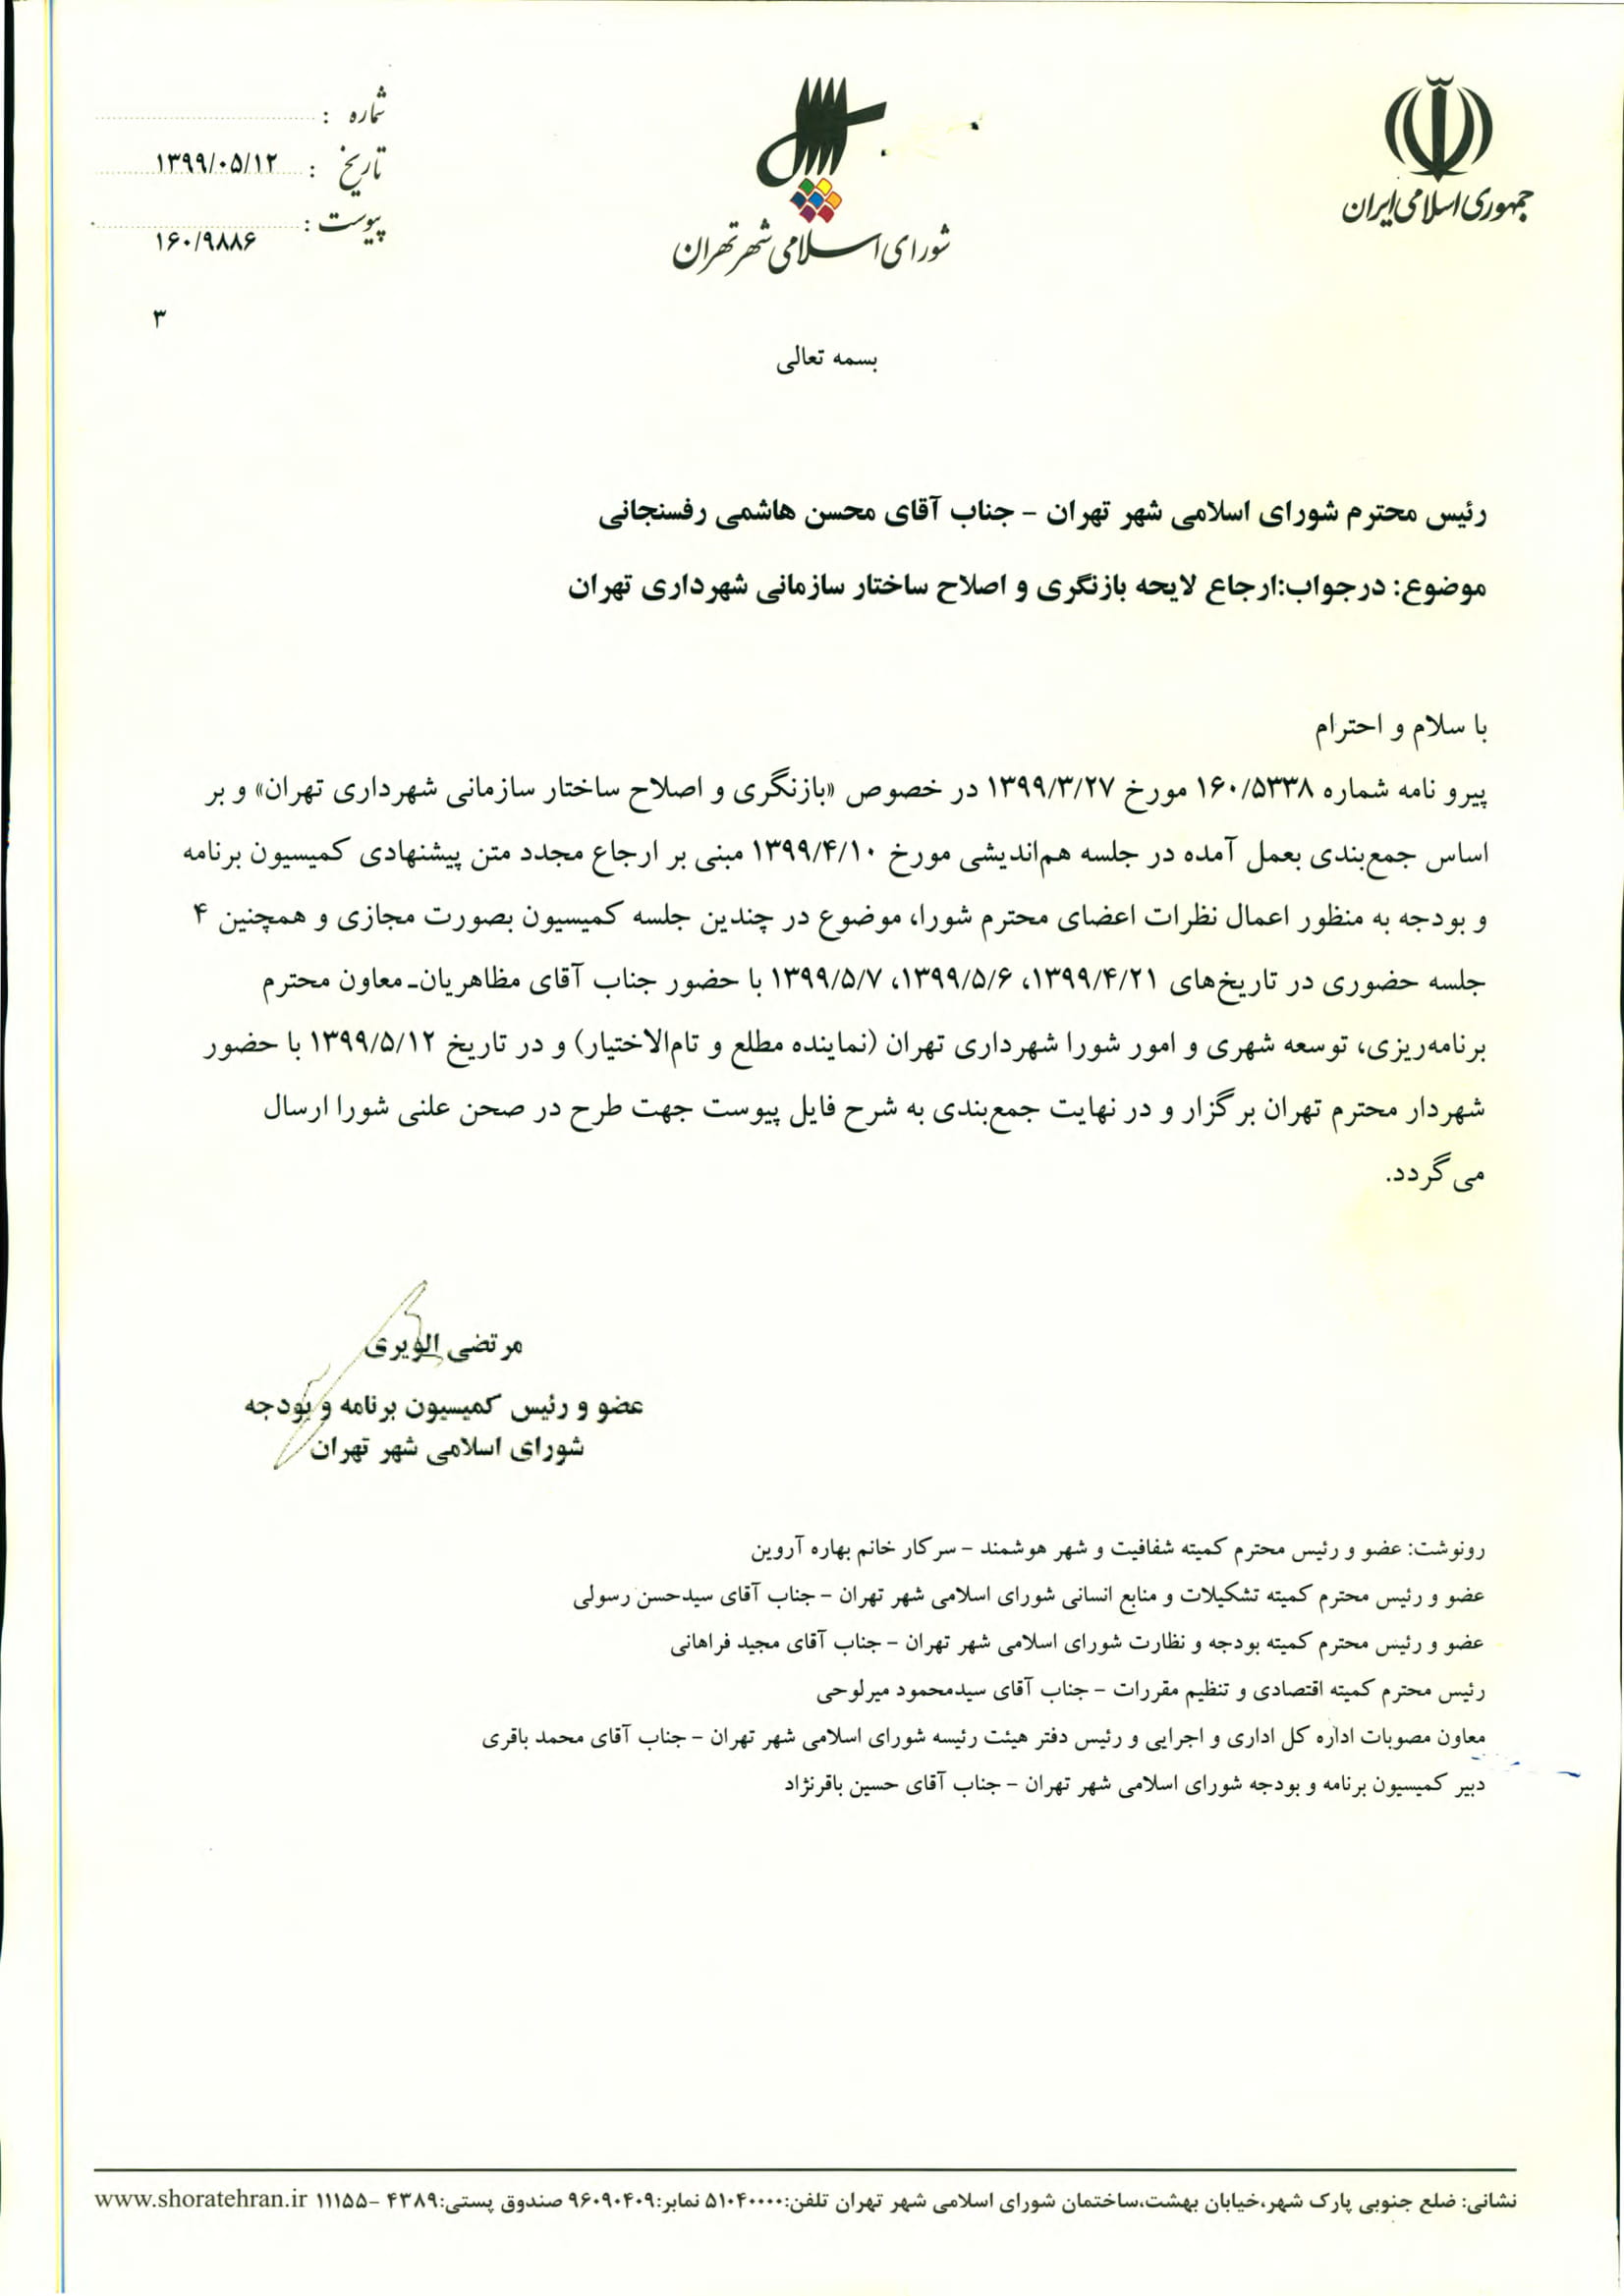 جمهوری اسلامی ایران
شورای اسلامی شهر تهران
شماره :
تاریخ : ۱۳۹۹/۰۵/۱۲
پیوست :
۱۶۰/۹۸۸۶
۳
بسمه تعالی
رئیس محترم شورای اسلامی شهر تهران - جناب آقای محسن هاشمی رفسنجانی
موضوع: درجواب:ارجاع لایحه بازنگری و اصلاح ساختار سازمانی شهرداری تهران
با سلام و احترام
پیرو نامه شماره ۱۶۰/۵۳۳۸ مورخ ۱۳۹۹/۳/۲۷ در خصوص «بازنگری و اصلاح ساختار سازمانی شهرداری تهران» و بر
اساس جمع‌بندی بعمل آمده در جلسه هم‌اندیشی مورخ ۱۳۹۹/۴/۱۰ مبنی بر ارجاع مجدد متن پیشنهادی کمیسیون برنامه
و بودجه به منظور اعمال نظرات اعضای محترم شورا، موضوع در چندین جلسه کمیسیون بصورت مجازی و همچنین ۴
جلسه حضوری در تاریخ‌های ۱۳۹۹/۴/۲۱، ۱۳۹۹/۵/۶، ۱۳۹۹/۵/۷ با حضور جناب آقای مظاهریان-معاون محترم
برنامه‌ریزی، توسعه شهری و امور شورا شهرداری تهران (نماینده مطلع و تام‌الاختیار) و در تاریخ ۱۳۹۹/۵/۱۲ با حضور
شهردار محترم تهران برگزار و در نهایت جمع‌بندی به شرح فایل پیوست جهت طرح در صحن علنی شورا ارسال
می گردد.
مرتضی الویری
عضو و رئیس کمیسیون برنامه و بودجه
شورای اسلامی شهر تهران
رونوشت: عضو و رئیس محترم کمیته شفافیت و شهر هوشمند - سرکار خانم بهاره آروین
عضو و رئیس محترم کمیته تشکیلات و منابع انسانی شورای اسلامی شهر تهران - جناب آقای سیدحسن رسولی
عضو و رئیس محترم کمیته بودجه و نظارت شورای اسلامی شهر تهران - جناب آقای مجید فراهانی
رئیس محترم کمیته اقتصادی و تنظیم مقررات - جناب آقای سیدمحمود میرلوحی
معاون مصوبات اداره کل اداری و اجرایی و رئیس دفتر هیئت رئیسه شورای اسلامی شهر تهران - جناب آقای محمد باقری
دبیر کمیسیون برنامه و بودجه شورای اسلامی شهر تهران - جناب آقای حسین باقرنژاد
نشانی: ضلع جنوبی پارک شهر،خیابان بهشت،ساختمان شورای اسلامی شهر تهران تلفن:۵۱۰۴۰۰۰۰ نمابر:۹۶۰۹۰۴۰۹ صندوق پستی:۴۳۸۹ -۱۱۱۵۵ www.shoratehran.ir